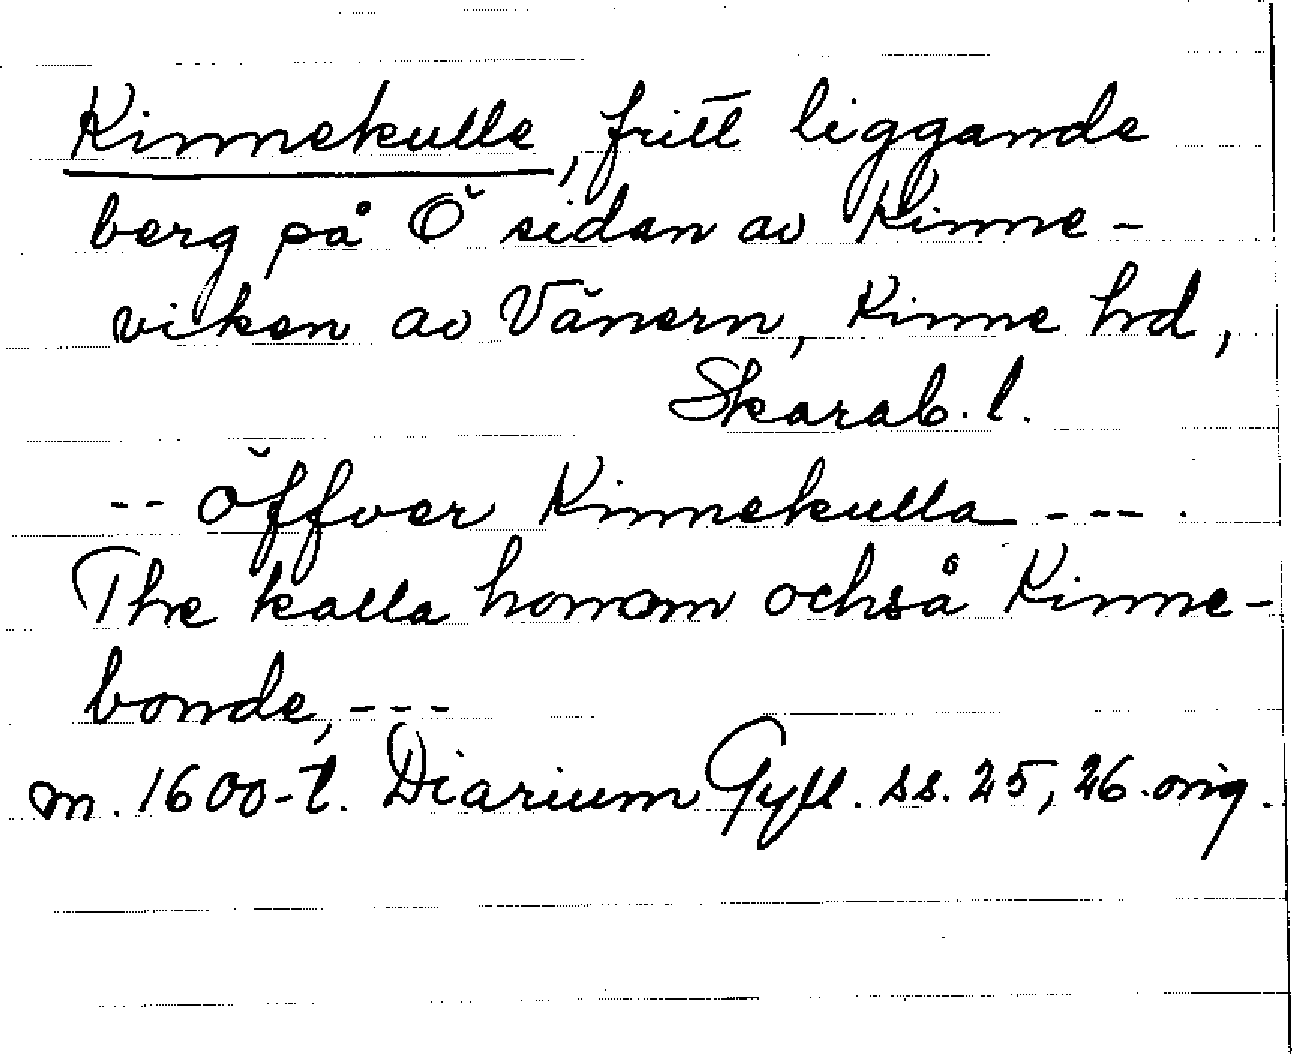 Kinnekulle, fritt liggande
berg på Ö sidan av Kinne-
viken av Vänern, Kinne hd,
Skarab. l.
-- öffver Kinnekulla ---.
The kalla honom ochså Kinne-
bonde, ---
m. 1600-t. Diarium Gyll. ss. 25, 26 orig.